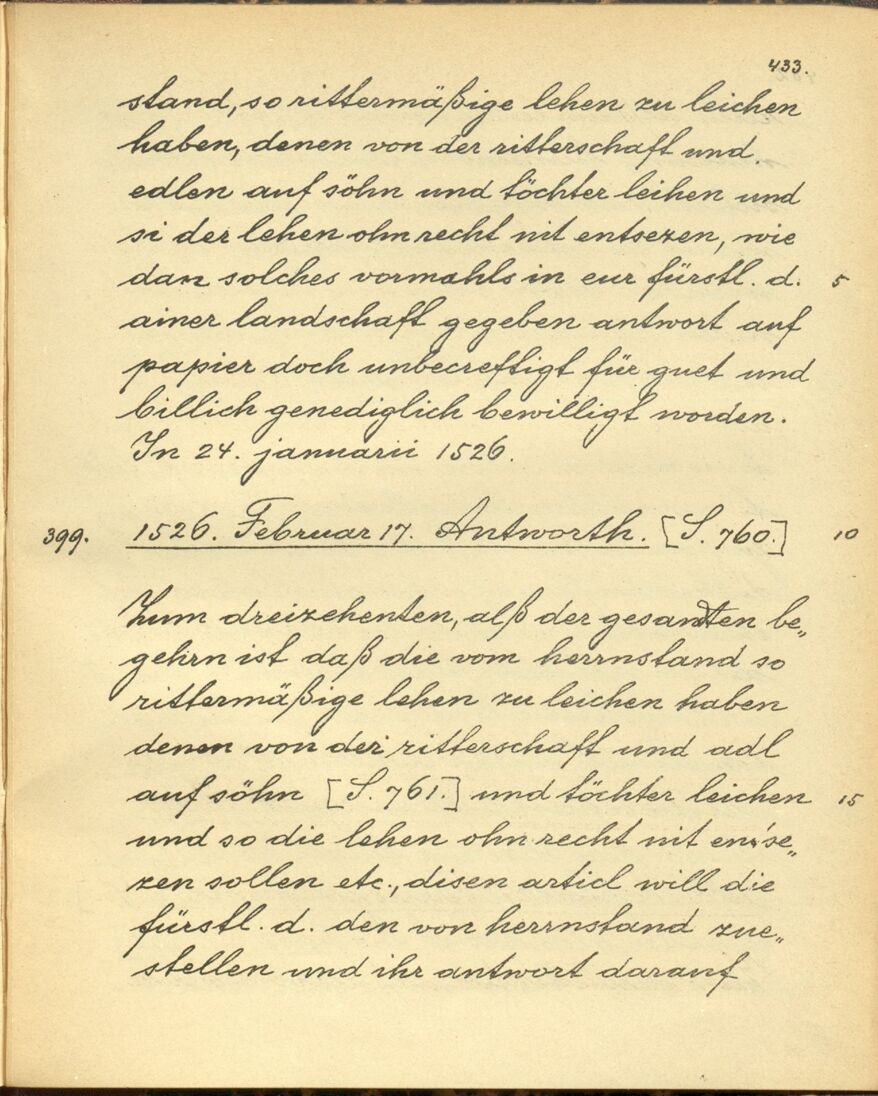 433.
stand, so rittermäßige lehen zu leichen
haben, denen von der ritterschaft und
edlen auf söhn und töchter leihen und
si der lehen ohn recht nit entsezen, wie
dan solches vormahls in eur fürstl. d. 5
ainer landschaft gegeben antwort auf
papier doch unbecreftigt für guet und
billich genediglich bewilligt worden.
In 24. januarii 1526.
399. 1526. Februar 17. Antworth. [S. 760.] 10
Zum dreizehenten, alß der gesandten be„
gehrn ist daß die vom herrnstand so
rittermäßige lehen zu leichen haben
denen von der ritterschaft und adl
auf söhn [S. 761.] und töchter leichen 15
und so die lehen ohn recht nit entse„
zen sollen etc., disen articl will die
fürstl. d. den von herrnstand zue„
stellen und ihr antwort darauf